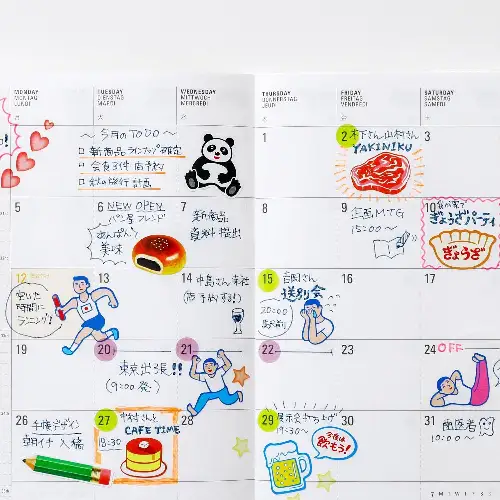 MONDAY
MONTAG
LUNDI
TUESDAY
DIENSTAG
MARDI
WEDNESDAY
MITTWOCH
MERCREDI
THURSDAY
DONNERSTAG
JEUDI
FRIDAY
FREITAG
VENDREDI
SATURDAY
SAMSTAG
SAMEDI
~5月のTODO~
新商品ラインナップ確定
会食3件店予約
秋の旅行計画
1
2
木下さん山村さん
YAKINIKU
3
5
6
NEW OPEN
パン屋フレンド
あんぱん!
美味
7
新商品
資料提出
8
9
企画MTG
15:00~
10
我が家で
ぎょうざパーティ
ぎょうざ
12
空いた
時間に
ランニング!
13
14
中島さん来社
(店予約する!)
15
吉岡さん
送別会
20:00
16
17
19
20
21
東京出張!!
(9:00発)
22
23
24
OFF
26
手帳デザイン
朝イチ入稿
27
中村さんと
CAFE TIME
13:30
28
29
展示会打ち上げ
19:30~
今夜は
飲もう!
30
31
歯医者
10:00~